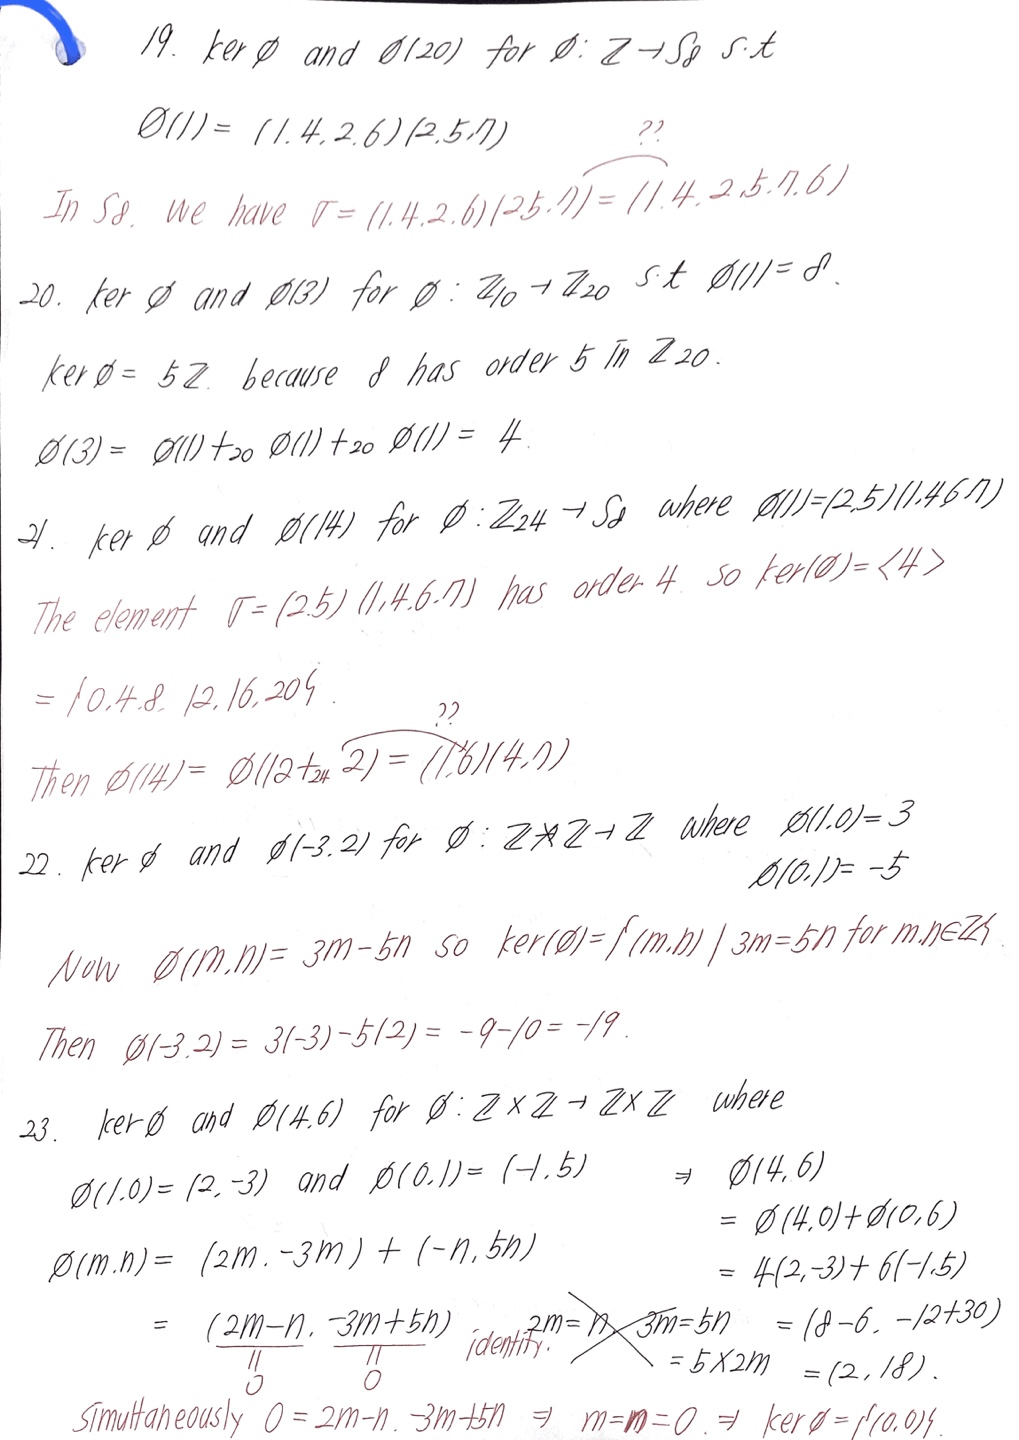 19. ker ∅ and ∅(20) for ∅: ℤ→S8 s.t
∅(1) = (1.4.2.6)(2.5.7)
??
In S8. we have σ = (1.4.2.6)(25.7) = (1.4.2.5.7.6)
20. ker ∅ and ∅(3) for ∅: ℤ10 → ℤ20 s.t ∅(1) = 8.
ker ∅ = 5ℤ. because 8 has order 5 in ℤ20.
∅(3) = ∅(1) +20 ∅(1) +20 ∅(1) = 4.
21. ker ∅ and ∅(14) for ∅: ℤ24 → S8 where ∅(1)=(2,5)(1.4.6.7)
The element σ = (2.5)(1.4.6.7) has order 4. so ker(∅) = <4>
= {0.4.8. 12.16.20}.
??
Then ∅(14) = ∅(12 +24 2) = (1.6)(4.7)
22. ker ∅ and ∅(-3.2) for ∅: ℤ×ℤ → ℤ where ∅(1.0) = 3
∅(0.1) = -5
Now ∅(m.n) = 3m-5n so ker(∅) = {(m.n) | 3m=5n for m.n∈ℤ}.
Then ∅(-3.2) = 3(-3)-5(2) = -9-10 = -19.
23. ker ∅ and ∅(4,6) for ∅: ℤ×ℤ → ℤ×ℤ where
∅(1.0) = (2,-3) and ∅(0.1) = (-1.5) ⇒ ∅(4,6)
= ∅(4.0)+∅(0,6)
∅(m.n) = (2m.-3m) + (-n, 5n)
= 4(2,-3)+6(-1.5)
= (2m-n. -3m+5n) identity. 2m=n 3m=5n = (8-6. -12+30)
= 5×2m = (2, 18).
= 0 = 0
simultaneously 0 = 2m-n. -3m+5n ⇒ m=n=0. ⇒ ker ∅ = {(0.0)}.